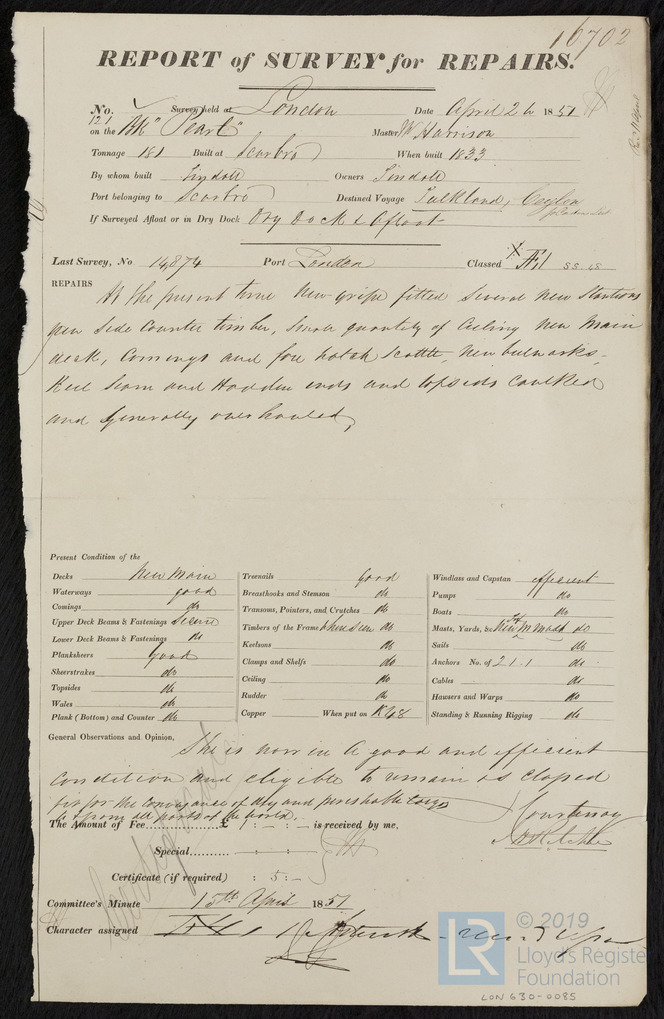 16702
REPORT of SURVEY for REPAIRS.
No. Survey held at London Date April 2 1851
121
on the Bk "Pearl" Master W Harrison
Tonnage 181 Built at Scarbro When built 1833
By whom built Tindall Owners Tindall
Port belonging to Scarbro Destined Voyage Falkland, Ceylon
If Surveyed Afloat or in Dry Dock Dry Dock & Afloat
Last Survey, No 14,874 Port London Classed Æ1 SS 48
REPAIRS
At the present time New gripe fitted Several New Stantions
new Side Counter timber, Small quantity of Ceiling New Main
deck, Comings and fore hatch Scuttle, New bulwarks,
Keel Seam and Hooden ends and topsides Caulked
and Generally overhauled,
Present Condition of the
Decks New Main
Waterways good
Comings do
Upper Deck Beams & Fastenings Secure
Lower Deck Beams & Fastenings do
Planksheers Good
Sheerstrakes do
Topsides do
Wales do
Plank (Bottom) and Counter do
Treenails Good
Breasthooks and Stemson do
Transoms, Pointers, and Crutches do
Timbers of the Frame when seen do
Keelsons do
Clamps and Shelfs do
Ceiling do
Rudder do
Copper When put on 48
Windlass and Capstan efficient
Pumps do
Boats do
Masts, Yards, &c New M Mast do
Sails do
Anchors No. of 2.1.1 do
Cables do
Hawsers and Warps do
Standing & Running Rigging do
General Observations and Opinion,
She is now in a good and efficient
Condition and eligible to remain as Classed
fit for the Conveyance of dry and perishable Cargo
to & from all parts of the world. Courtenay
The Amount of Fee £ : - : - is received by me,
Special
Certificate (if required) : 5 : -
Committee's Minute 15th April 1851
Character assigned
© 2019
LR Lloyd's Register
Foundation
LON 630-0085